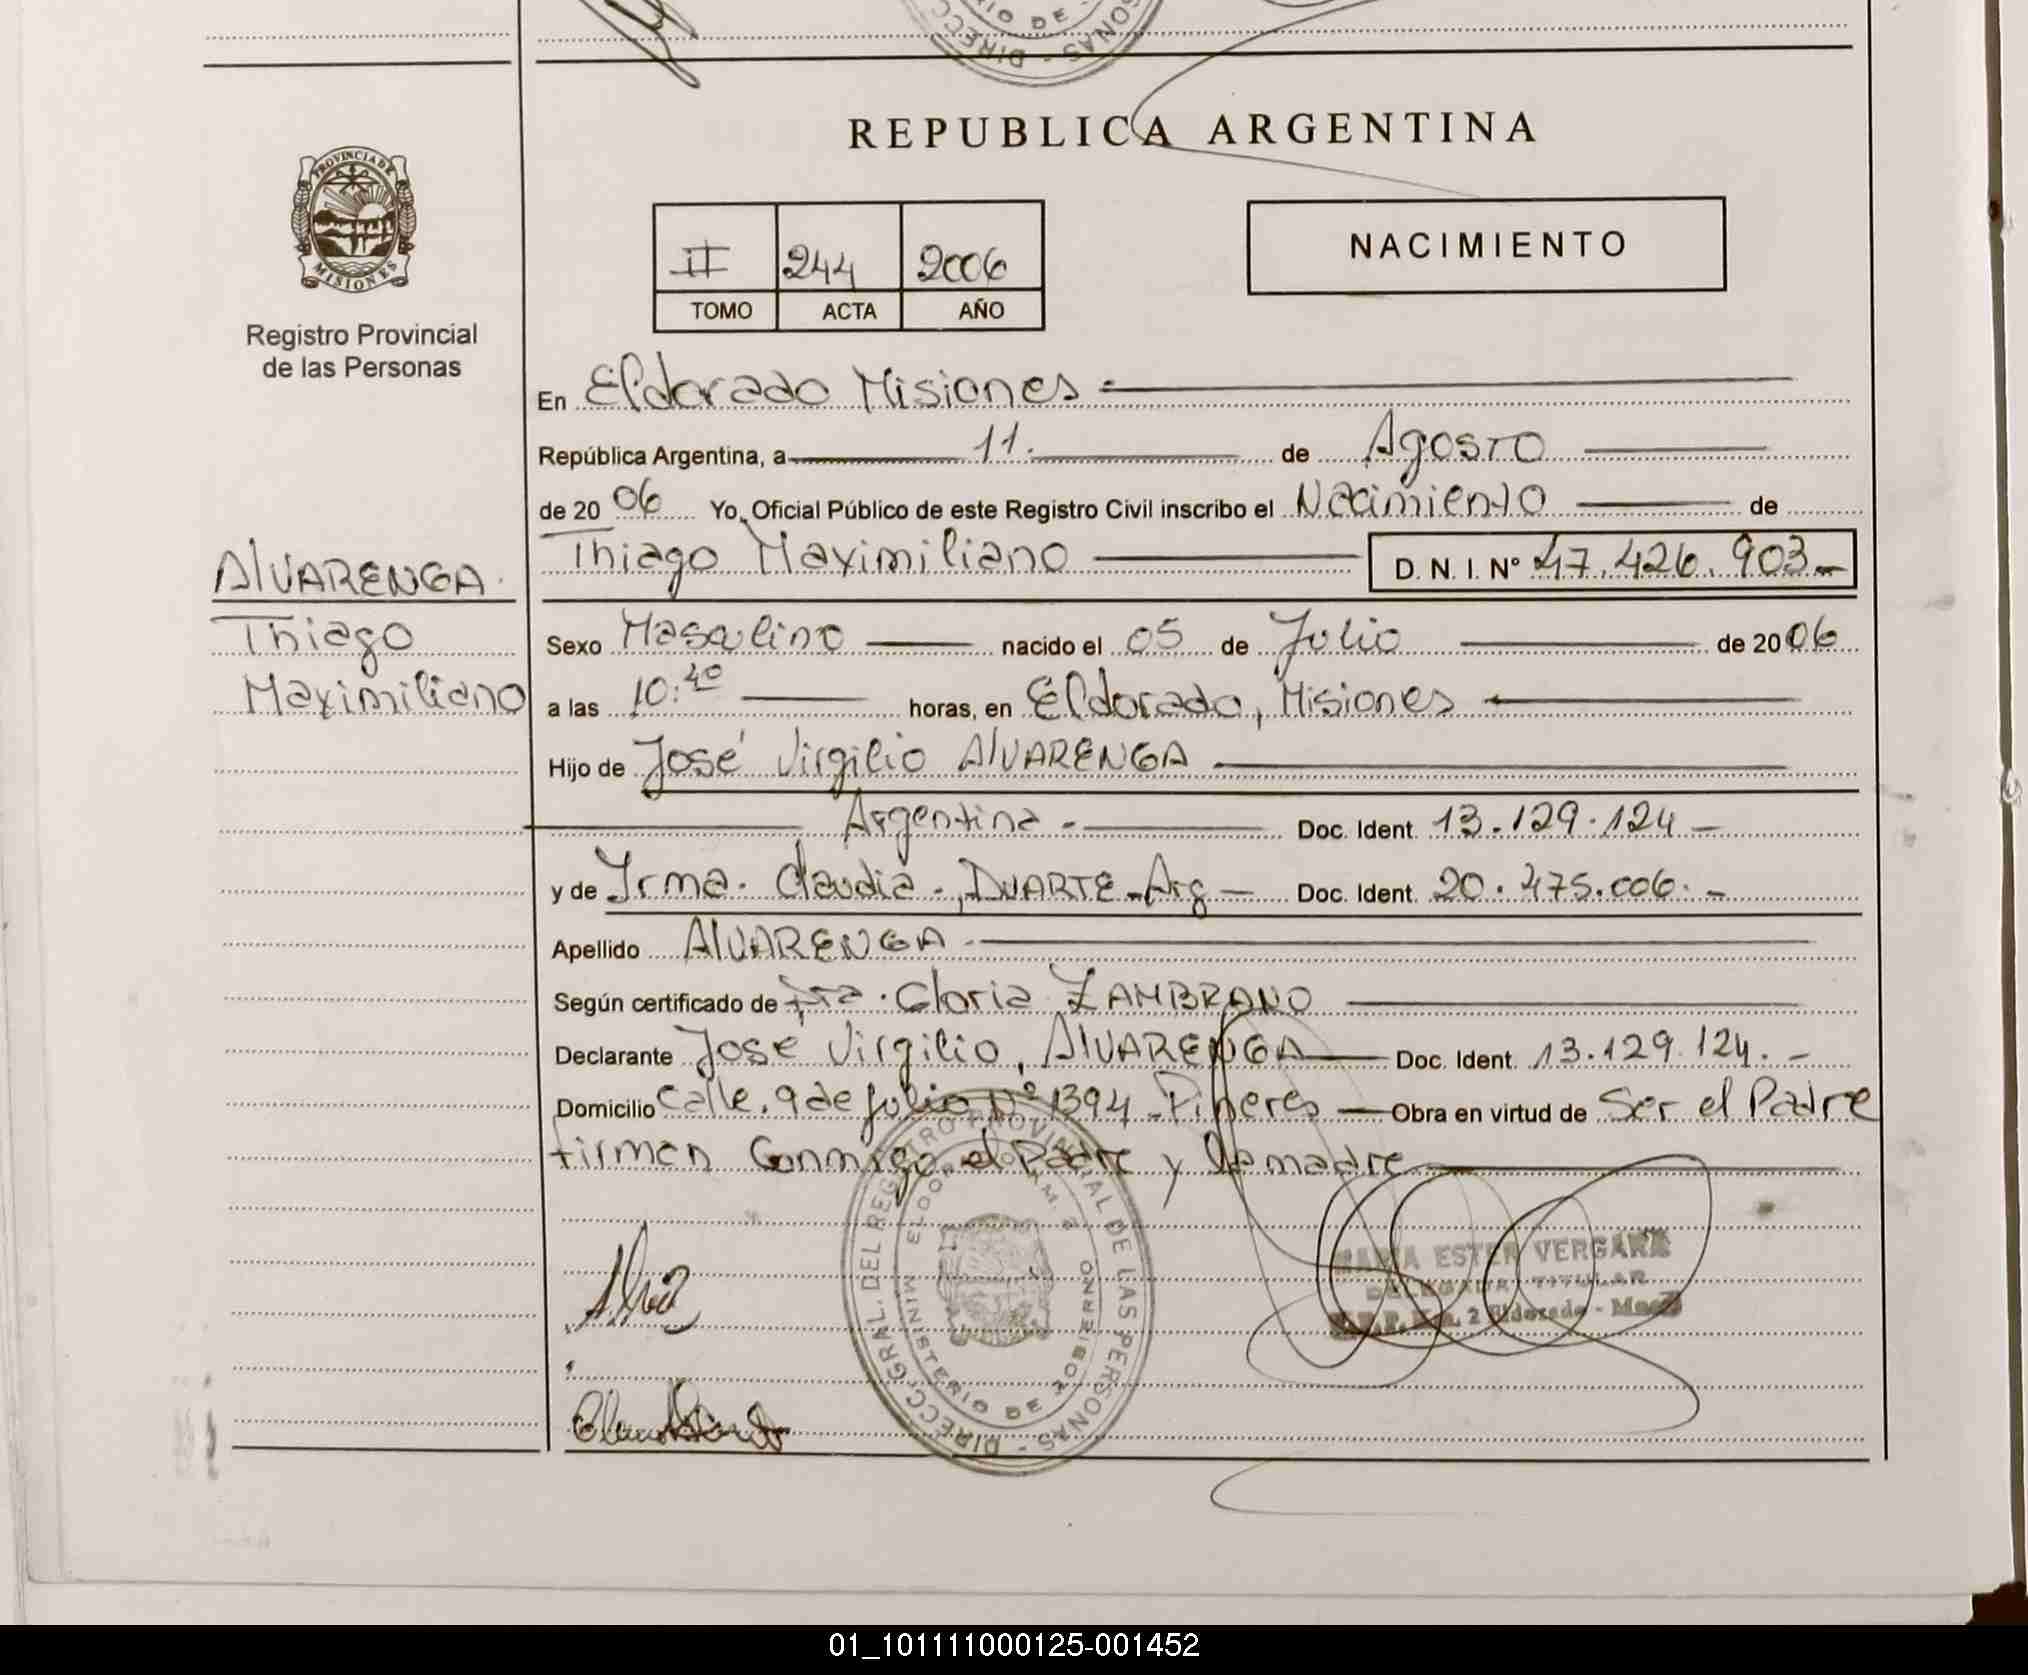 REPUBLICA ARGENTINA
PROVINCIA DE
MISIONES
Registro Provincial
de las Personas
II 244 2006
TOMO ACTA AÑO
NACIMIENTO
En Eldorado Misiones
República Argentina, a 11. de Agosto
de 2006 Yo, Oficial Público de este Registro Civil inscribo el Nacimiento de
Thiago Maximiliano D. N. I. Nº 47.426.903
ALVARENGA
Thiago
Maximiliano
Sexo Masculino nacido el 05 de Julio de 2006
a las 10:40 horas, en Eldorado, Misiones
Hijo de José Virgilio ALVARENGA
Argentina - Doc. Ident. 13.129.124
y de Irma Claudia DUARTE Arg Doc. Ident. 20.475.006
Apellido ALVARENGA
Según certificado de Gloria ZAMBRANO
Declarante José Virgilio, ALVARENGA Doc. Ident. 13.129.124.
Domicilio Calle 9 de Julio Nº 1394 Obra en virtud de Ser el Padre
firman Conmigo el Padre y la madre
DIRECC. GRAL. DEL REGISTRO PROVINCIAL DE LAS PERSONAS
MINISTERIO DE GOBIERNO
MARIA ESTER VERGARA
DELEGADA TITULAR
2 Eldorado
01_101111000125-001452